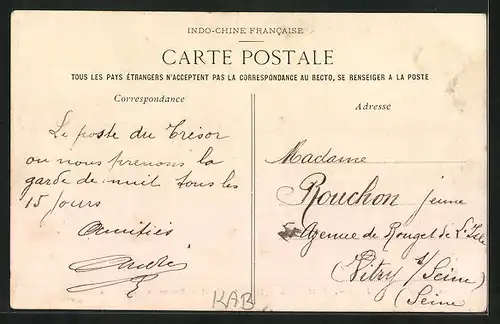 INDO-CHINE FRANÇAISE
CARTE POSTALE
TOUS LES PAYS ÉTRANGERS N'ACCEPTENT PAS LA CORRESPONDANCE AU RECTO, SE RENSEIGER A LA POSTE
Correspondance
Le poste du Trésor
ou nous prenons la
garde de nuit tous les
15 Jours
Amitiés
André
Adresse
Madame
Rouchon jeune
Avenue de Rouget de L'Isle
Vitry s/Seine
(Seine)
KAB